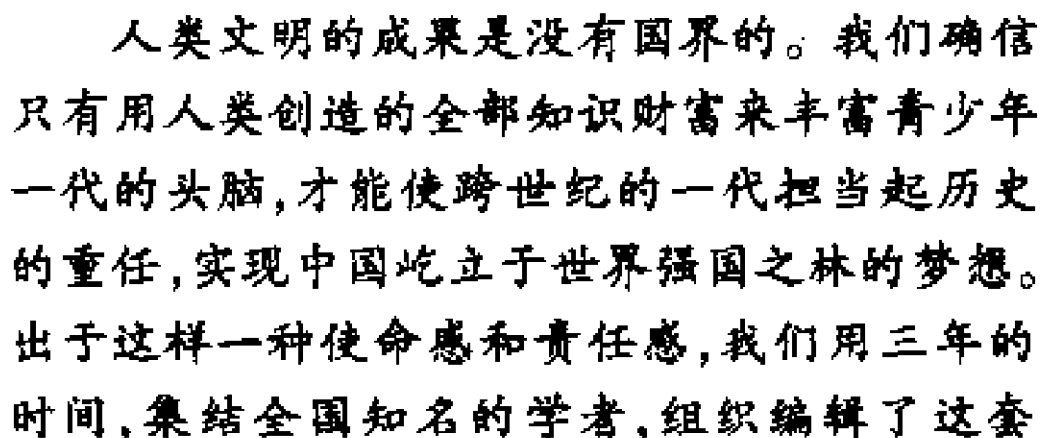 人类文明的成果是没有国界的。我们确信
只有用人类创造的全部知识财富来丰富青少年
一代的头脑,才能使跨世纪的一代担当起历史
的重任,实现中国屹立于世界强国之林的梦想。
出于这样一种使命感和责任感,我们用三年的
时间,集结全国知名的学者,组织编辑了这套